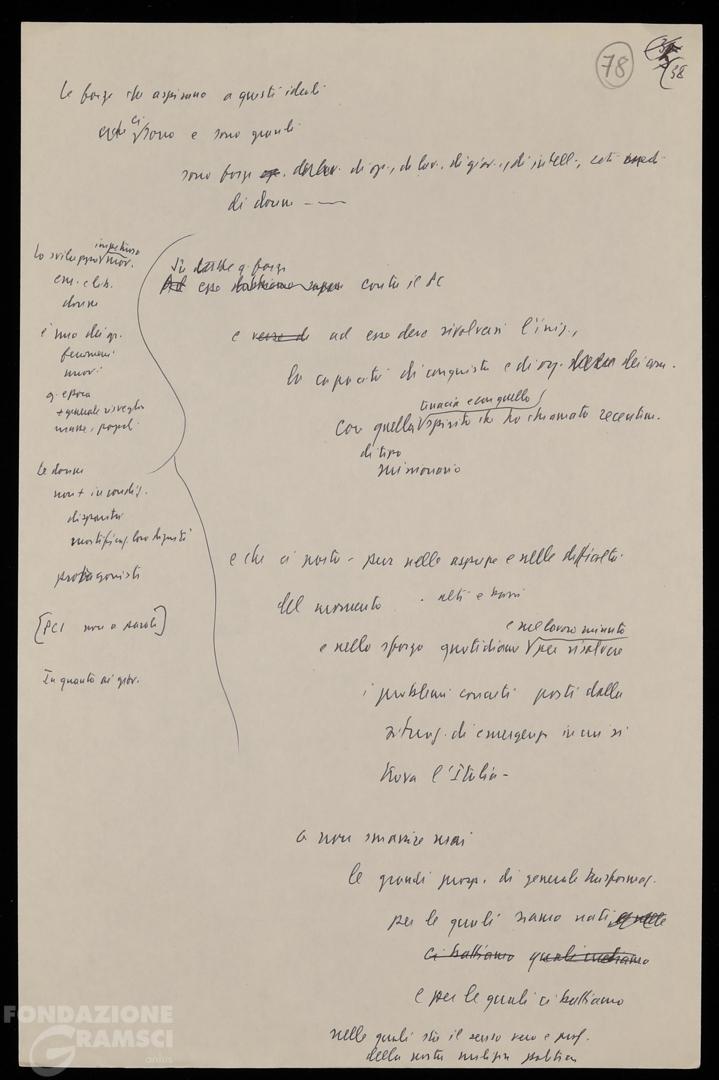 78
38
Le forze che aspirano a questi ideali
ci sono e sono grandi
sono forze di op., di lav., di giov., di intell., ceti medi
di donne
Lo sviluppo impetuoso mov.
em. e lib.
donne
è uno dei gr.
fenomeni
nuovi
q. epoca
+ generale risveglio
masse, popoli
Le donne
non + in condiz.
mortificaz. loro dignità
protagoniste
[PCI non a parole]
In quanto ai giov.
Su q. forze
esse conta il PC
e verso di ad esse deve rivolgersi l'iniz.,
la capacità di conquista e di org.
con quella tenacia e con quello spirito che ho chiamato recentem.
di tipo
missionario
e che ci porta - pur nelle asprezze e nelle difficoltà
del momento - alti e bassi
e nello sforzo quotidiano e nel lavoro minuto per risolvere
i problemi concreti posti dalla
situaz. di emergenza in cui si
trova l'Italia -
a non smarrire mai
le grandi prosp. di generale trasformaz.
per le quali siamo nati
ci battiamo
e per le quali ci battiamo
nelle quali sta il senso vero e prof.
della nostra milizia politica
FONDAZIONE
GRAMSCI
onlus